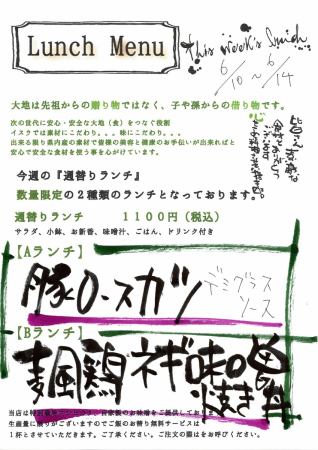 Lunch Menu
This week's Lunch
6/10 ~ 6/14
大地は先祖からの贈り物ではなく、子や孫からの借り物です。
次の世代に安心・安全な大地(食)をつなぐ役割
イスクでは素材にこだわり。。。味にこだわり。。。
出来る限り県内産の素材で皆様の美容と健康のお手伝いが出来ればと
安心で安全な食材を使う事を心がけています。
今週の『週替りランチ』
数量限定の2種類のランチとなっております。
週替りランチ 1100円(税込)
サラダ、小鉢、お新香、味噌汁、ごはん、ドリンク付き
【Aランチ】
豚ロースカツ
デミグラス
ソース
【Bランチ】
麦風鶏 ネギ味噌
焼き丼
生産量に限りがございますのでご飯のお替り無料サービスは
1杯とさせていただきます。ご了承ください。ご注文の際はをお呼びください。